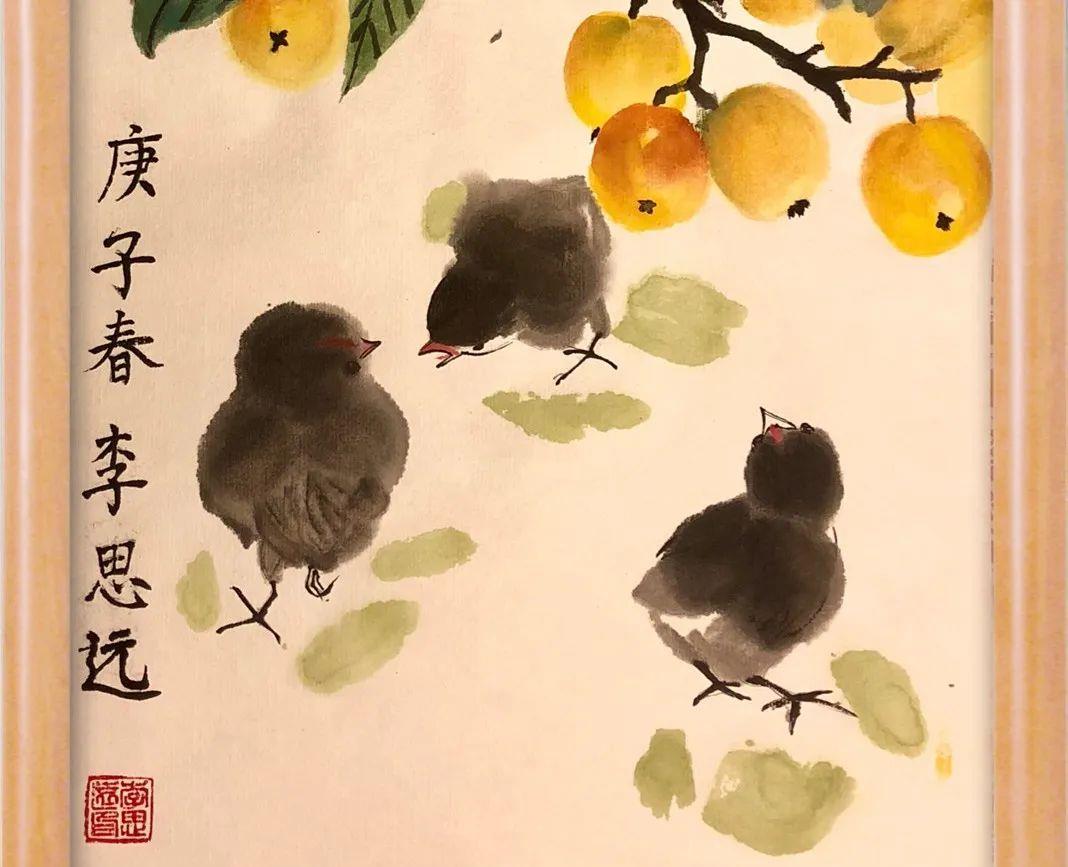 庚子春 李思远